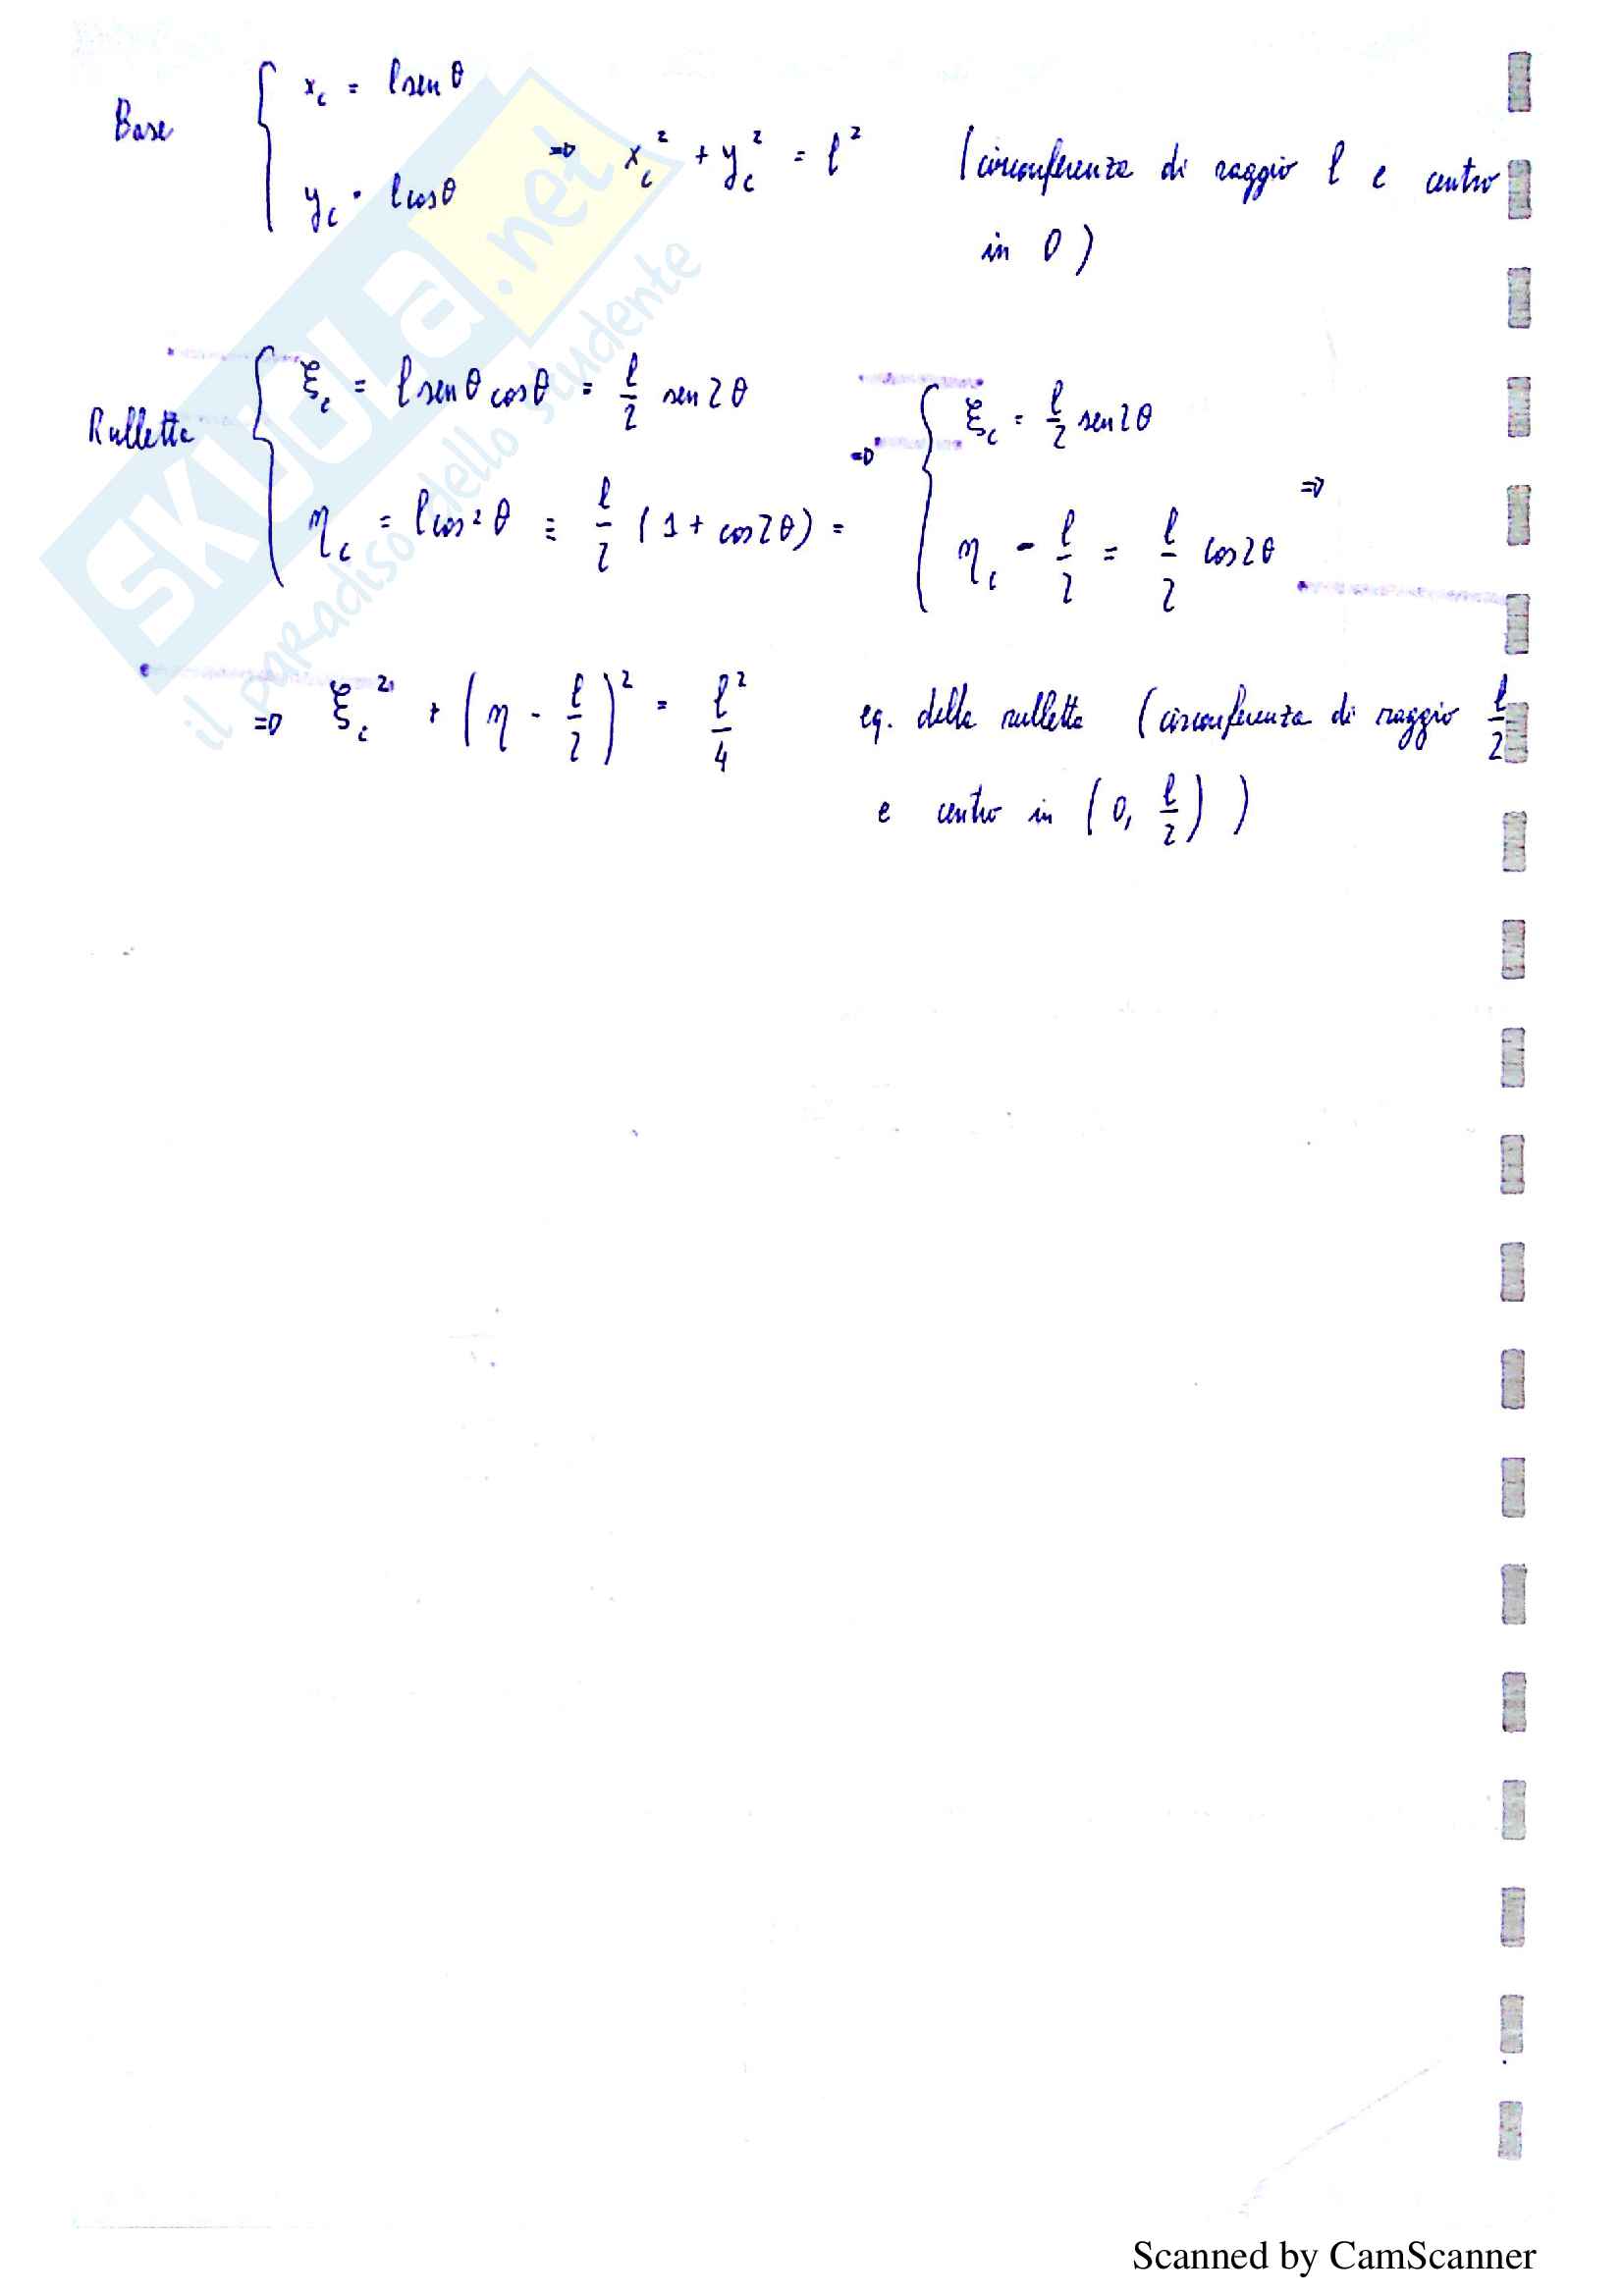 Base { x_c = l sen θ
y_c = l cos θ ⇒ x_c² + y_c² = l² (circonferenza di raggio l e centro
in O)
Rulletta { ξ_c = l sen θ cos θ = l/2 sen 2θ
η_c = l cos² θ = l/2 (1 + cos 2θ) =
⇒ { ξ_c = l/2 sen 2θ
η_c - l/2 = l/2 cos 2θ ⇒
⇒ ξ_c² + (η - l/2)² = l²/4 eq. della rulletta (circonferenza di raggio l/2
e centro in (0, l/2))
SKUOLA.net
il paradiso dello studente
Scanned by CamScanner